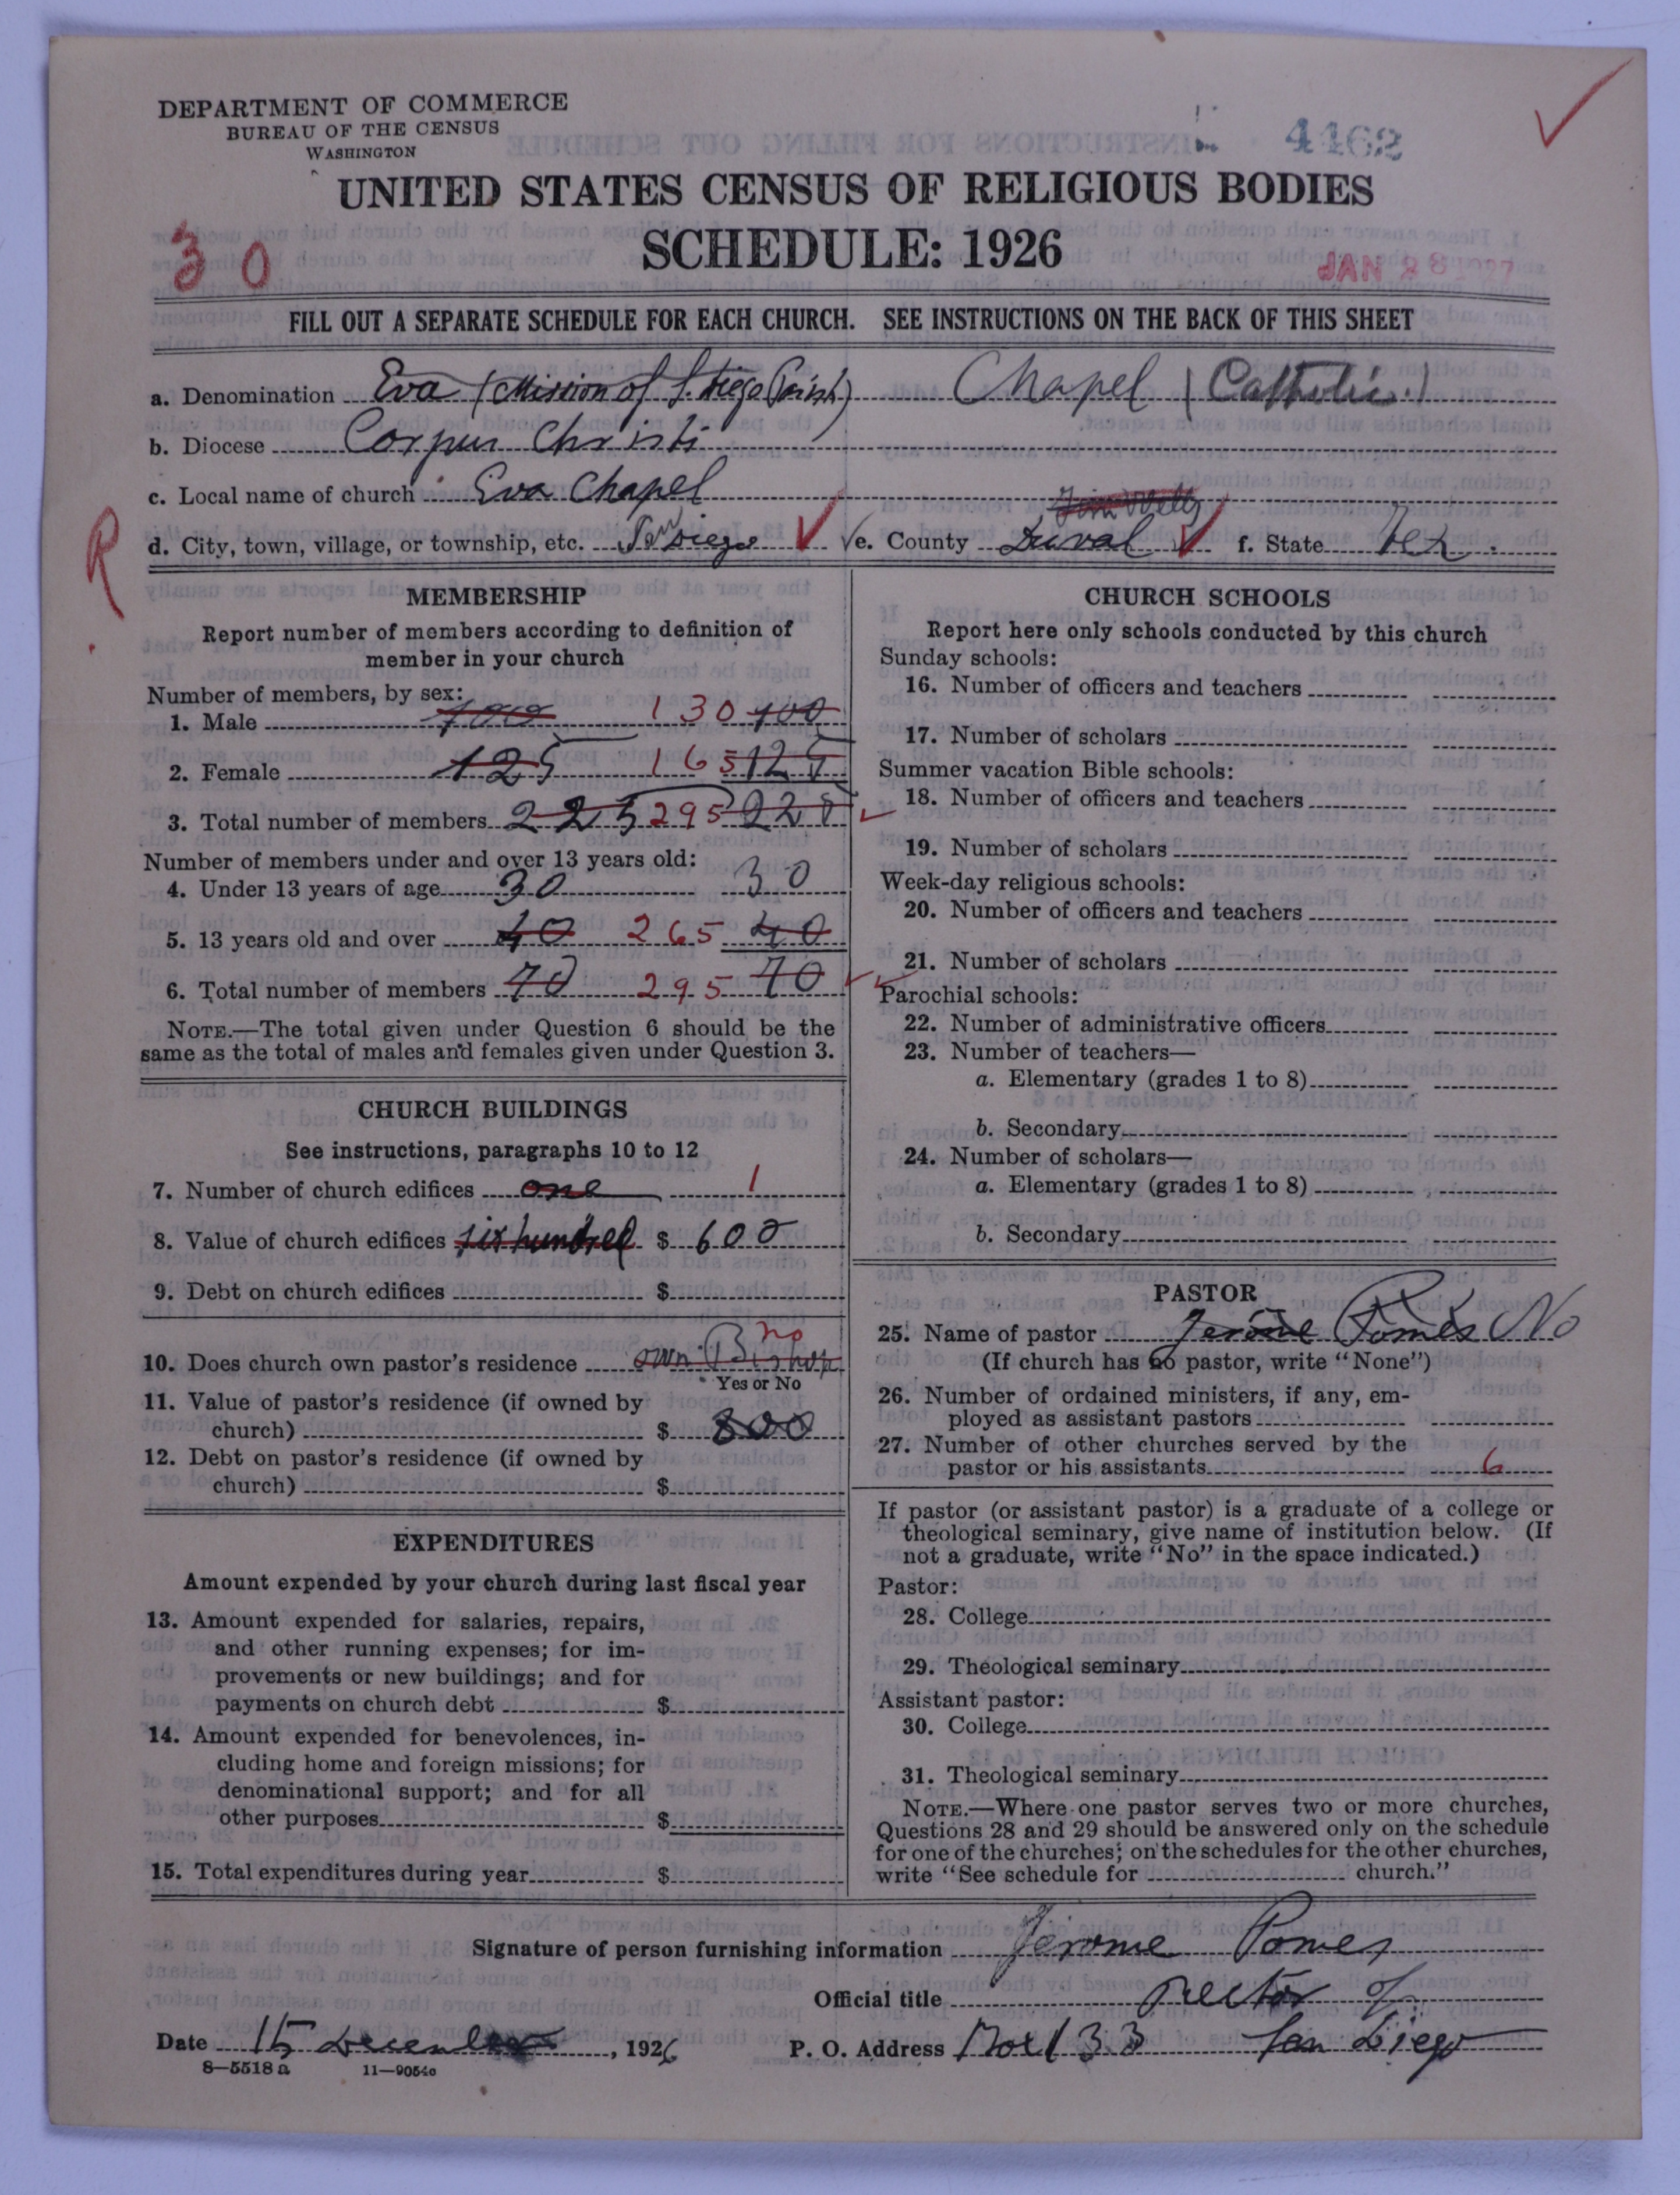 DEPARTMENT OF COMMERCE
BUREAU OF THE CENSUS
WASHINGTON
4462
UNITED STATES CENSUS OF RELIGIOUS BODIES
SCHEDULE: 1926
30
JAN 28 27
FILL OUT A SEPARATE SCHEDULE FOR EACH CHURCH. SEE INSTRUCTIONS ON THE BACK OF THIS SHEET
a. Denomination Eva (Mission of S. Diego Parish) Chapel (Catholic.)
b. Diocese Corpus Christi
c. Local name of church Eva Chapel
Jim Wells
d. City, town, village, or township, etc. San Diego e. County Duval f. State Tex.
R
MEMBERSHIP
Report number of members according to definition of
member in your church
Number of members, by sex:
1. Male 100 130 100
2. Female 125 165 125
3. Total number of members 225 295 225
Number of members under and over 13 years old:
4. Under 13 years of age 30 30
5. 13 years old and over 40 265 40
6. Total number of members 70 295 70
NOTE.—The total given under Question 6 should be the
same as the total of males and females given under Question 3.
CHURCH BUILDINGS
See instructions, paragraphs 10 to 12
7. Number of church edifices one 1
8. Value of church edifices six hundred $ 600
9. Debt on church edifices $
10. Does church own pastor's residence own Bishop no
Yes or No
11. Value of pastor's residence (if owned by
church) $ 800
12. Debt on pastor's residence (if owned by
church) $
EXPENDITURES
Amount expended by your church during last fiscal year
13. Amount expended for salaries, repairs,
and other running expenses; for im-
provements or new buildings; and for
payments on church debt $
14. Amount expended for benevolences, in-
cluding home and foreign missions; for
denominational support; and for all
other purposes $
15. Total expenditures during year $
CHURCH SCHOOLS
Report here only schools conducted by this church
Sunday schools:
16. Number of officers and teachers
17. Number of scholars
Summer vacation Bible schools:
18. Number of officers and teachers
19. Number of scholars
Week-day religious schools:
20. Number of officers and teachers
21. Number of scholars
Parochial schools:
22. Number of administrative officers
23. Number of teachers—
a. Elementary (grades 1 to 8)
b. Secondary
24. Number of scholars—
a. Elementary (grades 1 to 8)
b. Secondary
PASTOR
25. Name of pastor Jerome Pomes No
(If church has no pastor, write "None")
26. Number of ordained ministers, if any, em-
ployed as assistant pastors
27. Number of other churches served by the
pastor or his assistants 6
If pastor (or assistant pastor) is a graduate of a college or
theological seminary, give name of institution below. (If
not a graduate, write "No" in the space indicated.)
Pastor:
28. College
29. Theological seminary
Assistant pastor:
30. College
31. Theological seminary
NOTE.—Where one pastor serves two or more churches,
Questions 28 and 29 should be answered only on the schedule
for one of the churches; on the schedules for the other churches,
write "See schedule for church."
Signature of person furnishing information Jerome Pomes
Official title Rector of
Date 15 December, 1926 P. O. Address Box 133 San Diego
8—5518 a 11—9054c